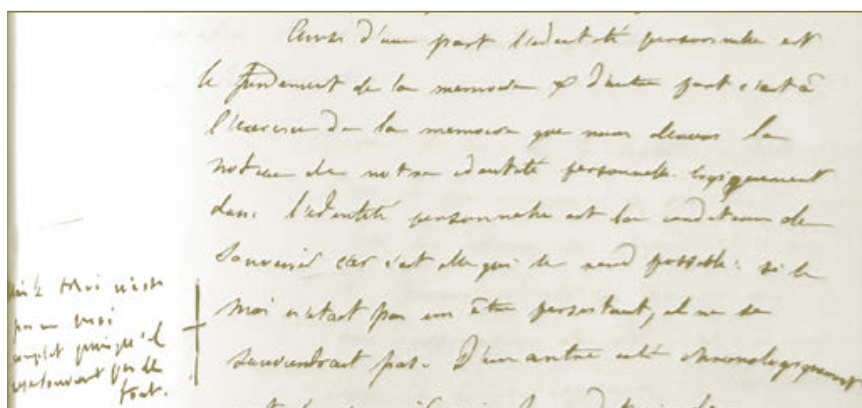 Ainsi d'une part l'identité personnelle est
le fondement de la memoire & d'autre part c'est à
l'exercice de la memoire que nous devons la
notion de notre identité personnelle. logiquement
donc l'identité personnelle est la condition du
Souvenir car c'est elle qui le rend possible: si le
moi n'etait pas un être persistant, il ne se
souviendrait pas. D'un autre coté chronologiquement
le Moi n'est
pas un moi
complet puisqu'il
se souvient pas de
tout.